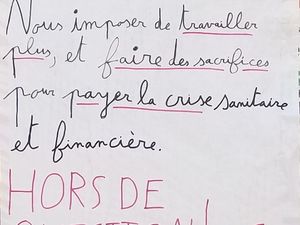 Nous imposer de travailler
plus, et faire des sacrifices
pour payer la crise sanitaire
et financière.
HORS DE